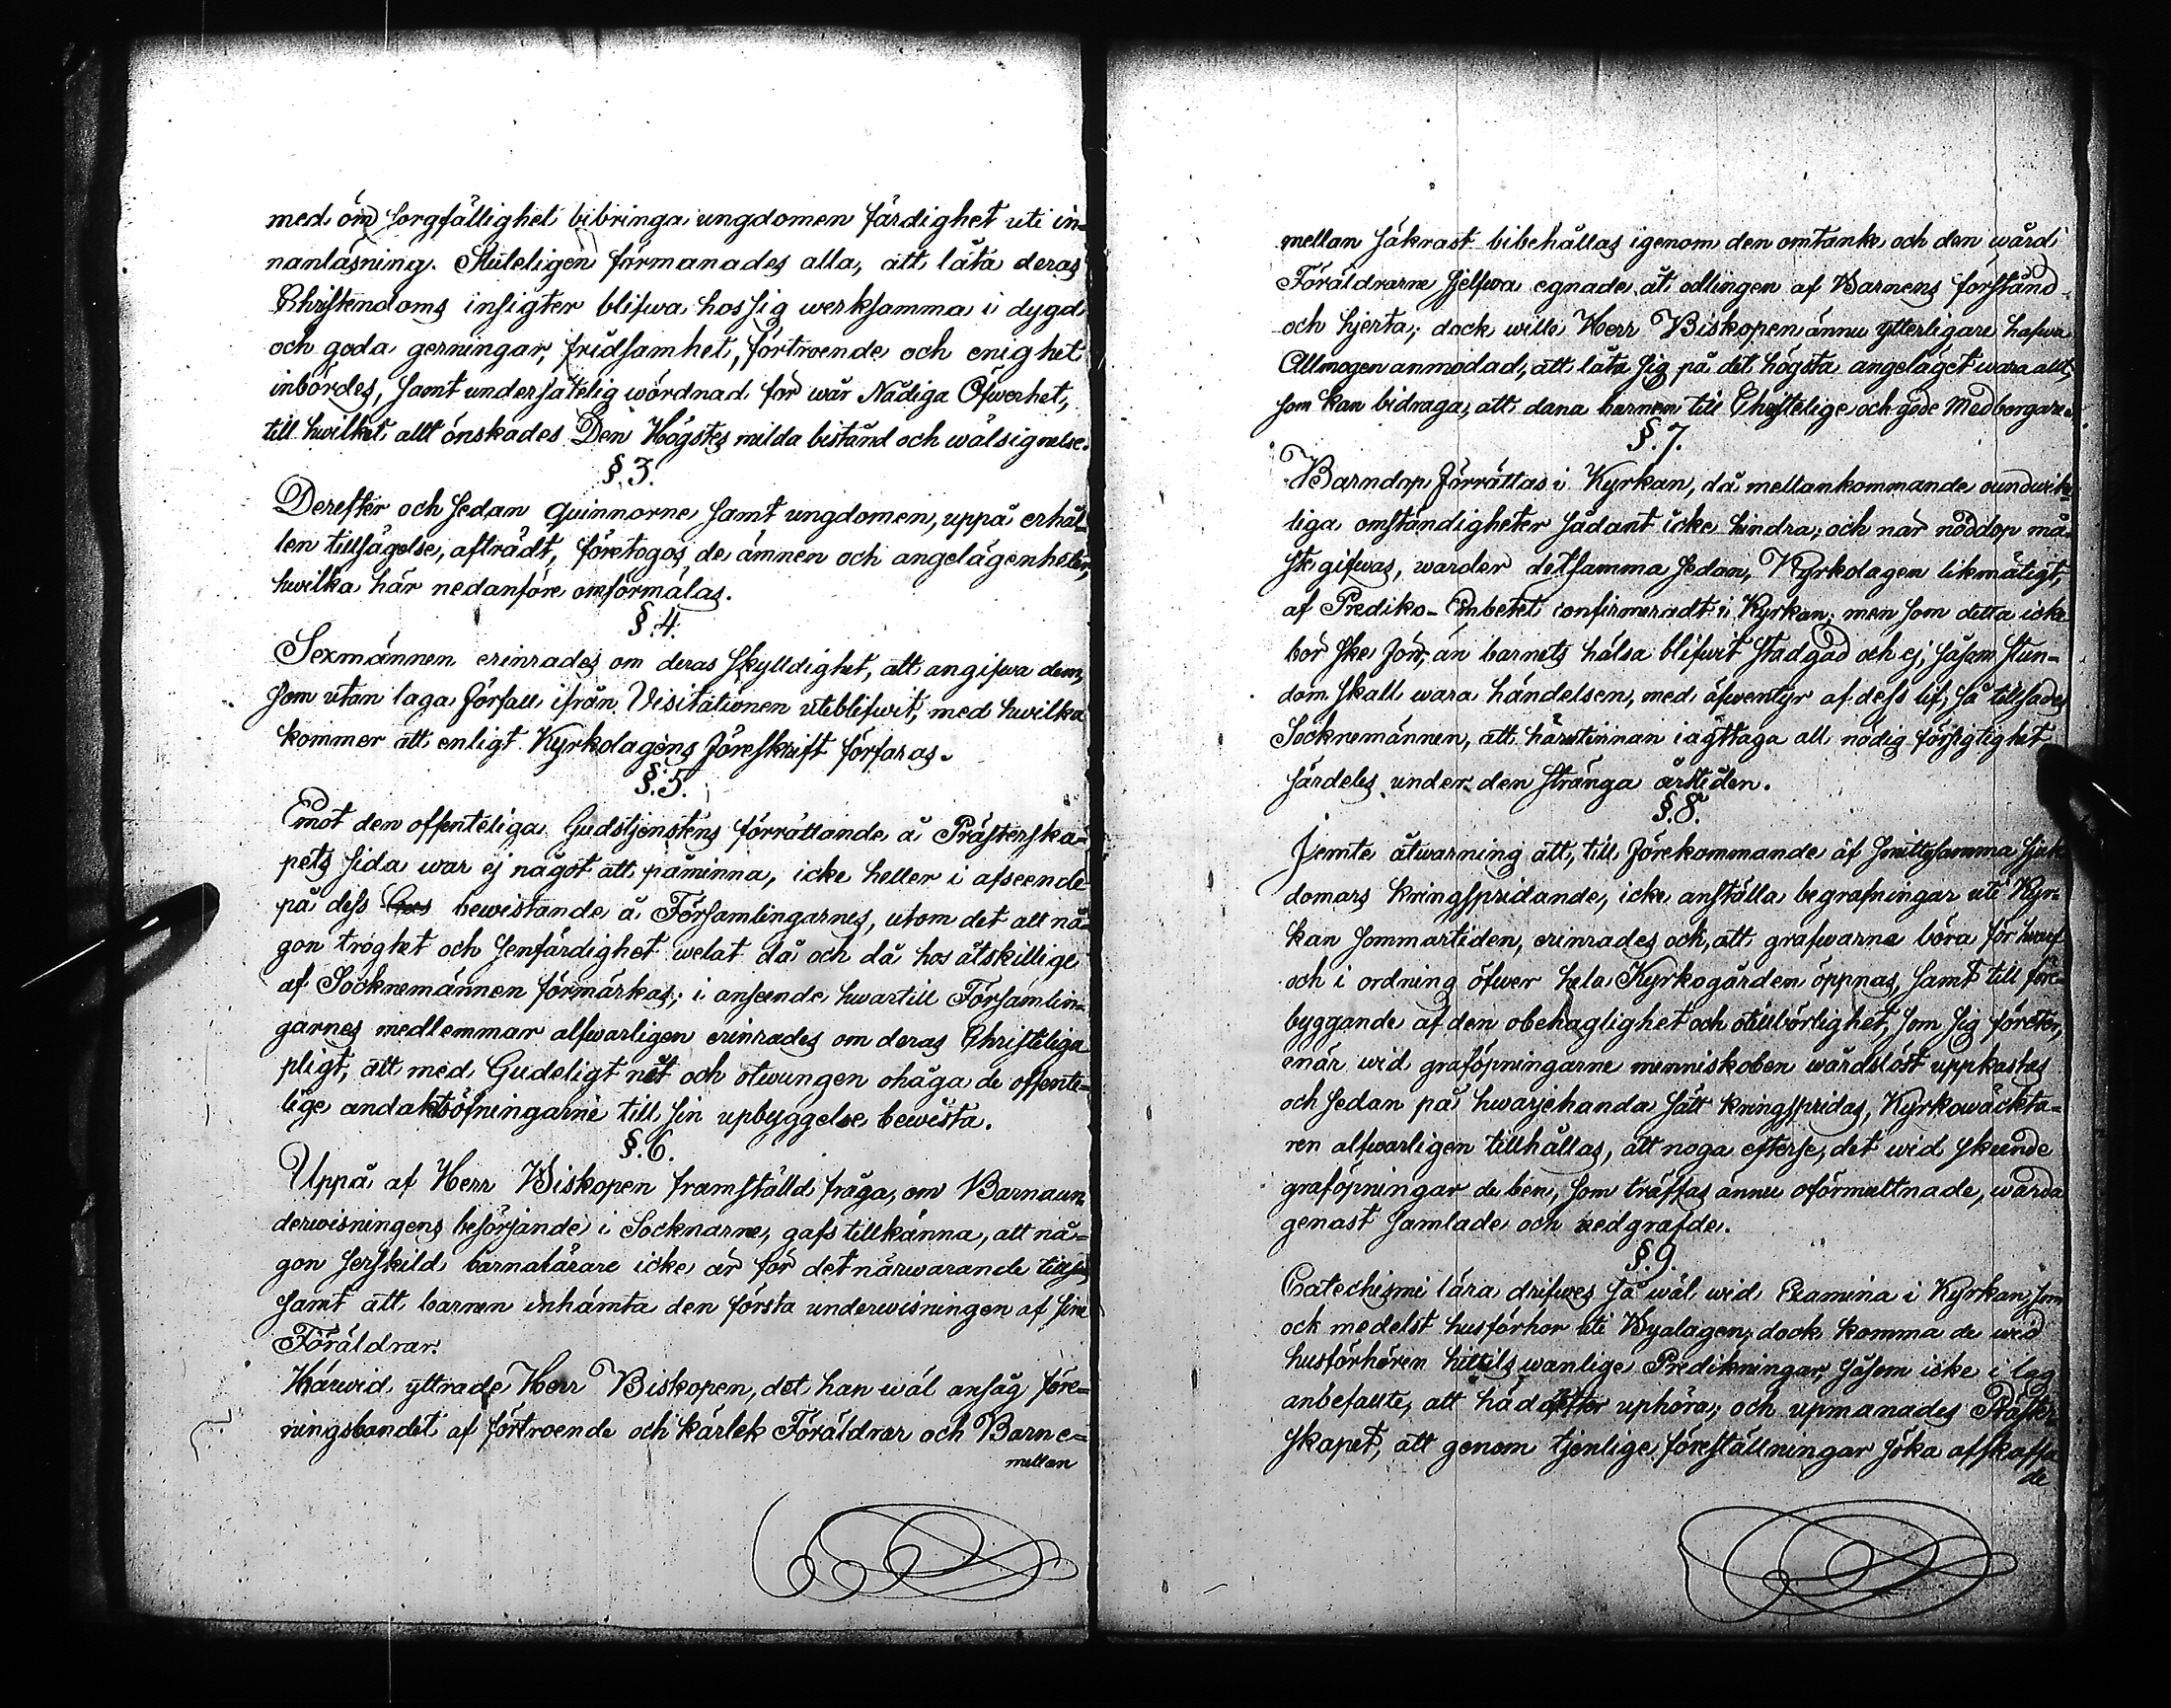 med öm sorgfällighet bibringa ungdomen färdighet uti in-
nanläsning. Sluteligen förmanades alla, att låta deras
Christendoms insigter blifwa hos sig werksamma i dygd
och goda gerningar, fridsamhet, förtroende och enighet
inbördes, samt undersåtelig wördnad för wår Nådiga Öfwerhet,
till hwilket allt önskades Den Högstes milda bistånd och wälsignelse.
§.3.
Derefter och sedan Quinnorne samt ungdomen, uppå erhål-
len tillsägelse, afträdt, företogos de ämnen och angelägenheter,
hwilka här nedanföre omförmälas.
§.4.
Sexmännen erinrades om deras skylldighet, att angifwa dem,
som utan laga förfall ifrån Visitationen uteblifwit, med hwilka
kommer att enligt Kyrkolagens föreskrift förfaras.
§.5.
Emot den offenteliga Gudstjenstens förrättande å Prästerska-
pets sida war ej något att påminna, icke heller i afseende
på dess bewistande å Församlingarnes, utom det att nå-
gon tröghet och senfärdighet welat då och då hos åtskillige
af Socknemännen förmärkas; i anseende hwartill Församlin-
garnes medlemmar alfwarligen erinrades om deras Christeliga
pligt, att med Gudeligt nit och otwungen ohåga de offente-
lige andaktsöfningarne till sin upbyggelse bewista.
§.6.
Uppå af Herr Biskopen framställd fråga, om Barnaun-
derwisningens besörjande i Socknarne, gafs tillkänna, att nå-
gon serskild barnalärare icke är för det närwarande
samt att barnen inhämta den första underwisningen af sine
Föräldrar.
Härwid yttrade Herr Biskopen, det han wäl ansåg före-
ningsbandet af förtroende och kärlek Föräldrar och Barne-
mellan
mellan säkrast bibehållas igenom den omtanke och den wård
Föräldrarne sjelfwa egnade åt odlingen af Barnens förstånd
och hjerta; dock wille Herr Biskopen ännu ytterligare hafwa
Allmogen anmodad, att låta sig på det högsta angeläget wara allt,
som kan bidraga, att dana barnen till Christelige och gode Medborgare.
§.7.
Barndop förrättas i Kyrkan, då mellankommande oundwike-
liga omständigheter sådant icke hindra; och när nöddop må-
ste gifwas, warder detsamma sedan, Kyrkolagen likmätigt,
af Prediko-Embetet confirmeradt i Kyrkan; men som detta icke
bör ske förr, än barnets hälsa blifwit stadgad och ej, såsom stun-
dom skall wara händelsen, med äfwentyr af dess lif, så tillsades
Socknemännen, att härutinnan iagttaga all nödig försigtighet
särdeles under den stränga årstiden.
§.8.
Jemte åtwarning att, till förekommande af smittsamma sjuk-
domars kringspridande, icke anställa begrafningar uti Kyr-
kan sommartiden, erinrades ock, att grafwarna böra för hwarf
och i ordning öfwer hela Kyrkogården öppnas, samt till före-
byggande af den obehaglighet och otillbörlighet, som sig företer,
enär wid graföpningarne menniskoben wårdslöst uppkastas
och sedan på hwarjehanda sätt kringspridas, Kyrkowäckta-
ren alfwarligen tillhållas, att noga efterse, det wid skeende
graföpningar de ben, som träffas ännu oförmultnade, warda
genast samlade och nedgrafde.
§.9.
Catechismi lära drifwes så wäl wid Examina i Kyrkan, som
ock medelst husförhör uti Byalagen; dock komma de wid
husförhören hittils wanlige Predikningar, såsom icke i lag
anbefallte, att hädanefter uphöra; och upmanades Präster-
skapet, att genom tjenlige föreställningar söka afskaffa
de